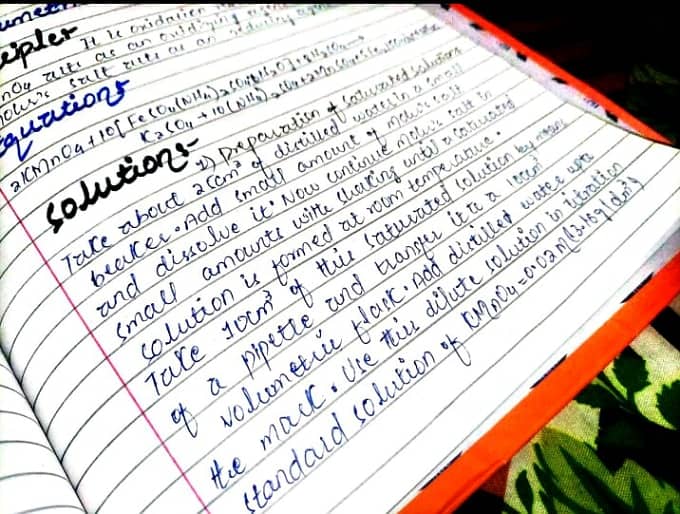 ciples
It is oxidation
nO4 acts as an oxidizing agent
Mohr's salt acts as an reducing agent
Equations
2KMnO4 + 10[FeSO4(NH4)2SO4
K2SO4 + 10(NH4)2SO4 + 2MnSO4
Solutions
1) Preparation of saturated solutions
Take about 25cm³ of distilled water in a small
beaker. Add small amount of Mohr's salt
and dissolve it. Now continue Mohr's salt in
small amounts with shaking until a saturated
solution is formed at room temperature.
Take 10cm³ of this saturated solution by means
of a pipette and transfer it to a 100cm³
volumetric flask. Add distilled water upto
the mark. Use this dilute solution in titration
standard solution of KMnO4 = 0.02M (3.16g/dm³)